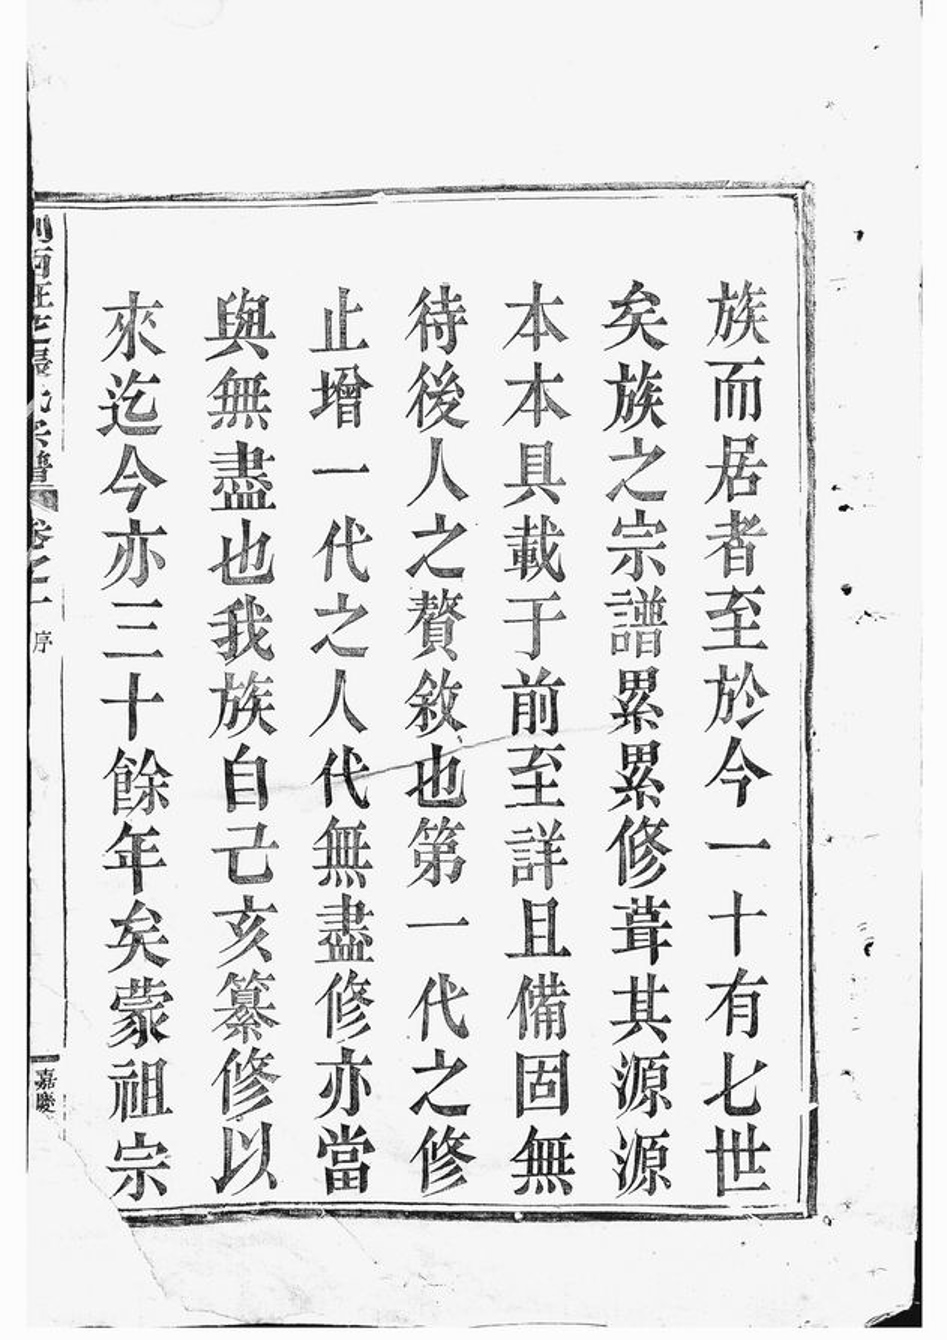 族而居者至於今一十有七世
矣族之宗譜累累修葺其源源
本本具載于前至詳且備固無
待後人之贅敘也第一代之修
止增一代之人代無盡修亦當
與無盡也我族自己亥纂修以
來迄今亦三十餘年矣蒙祖宗
西 氏宗譜 卷之一 序 嘉慶